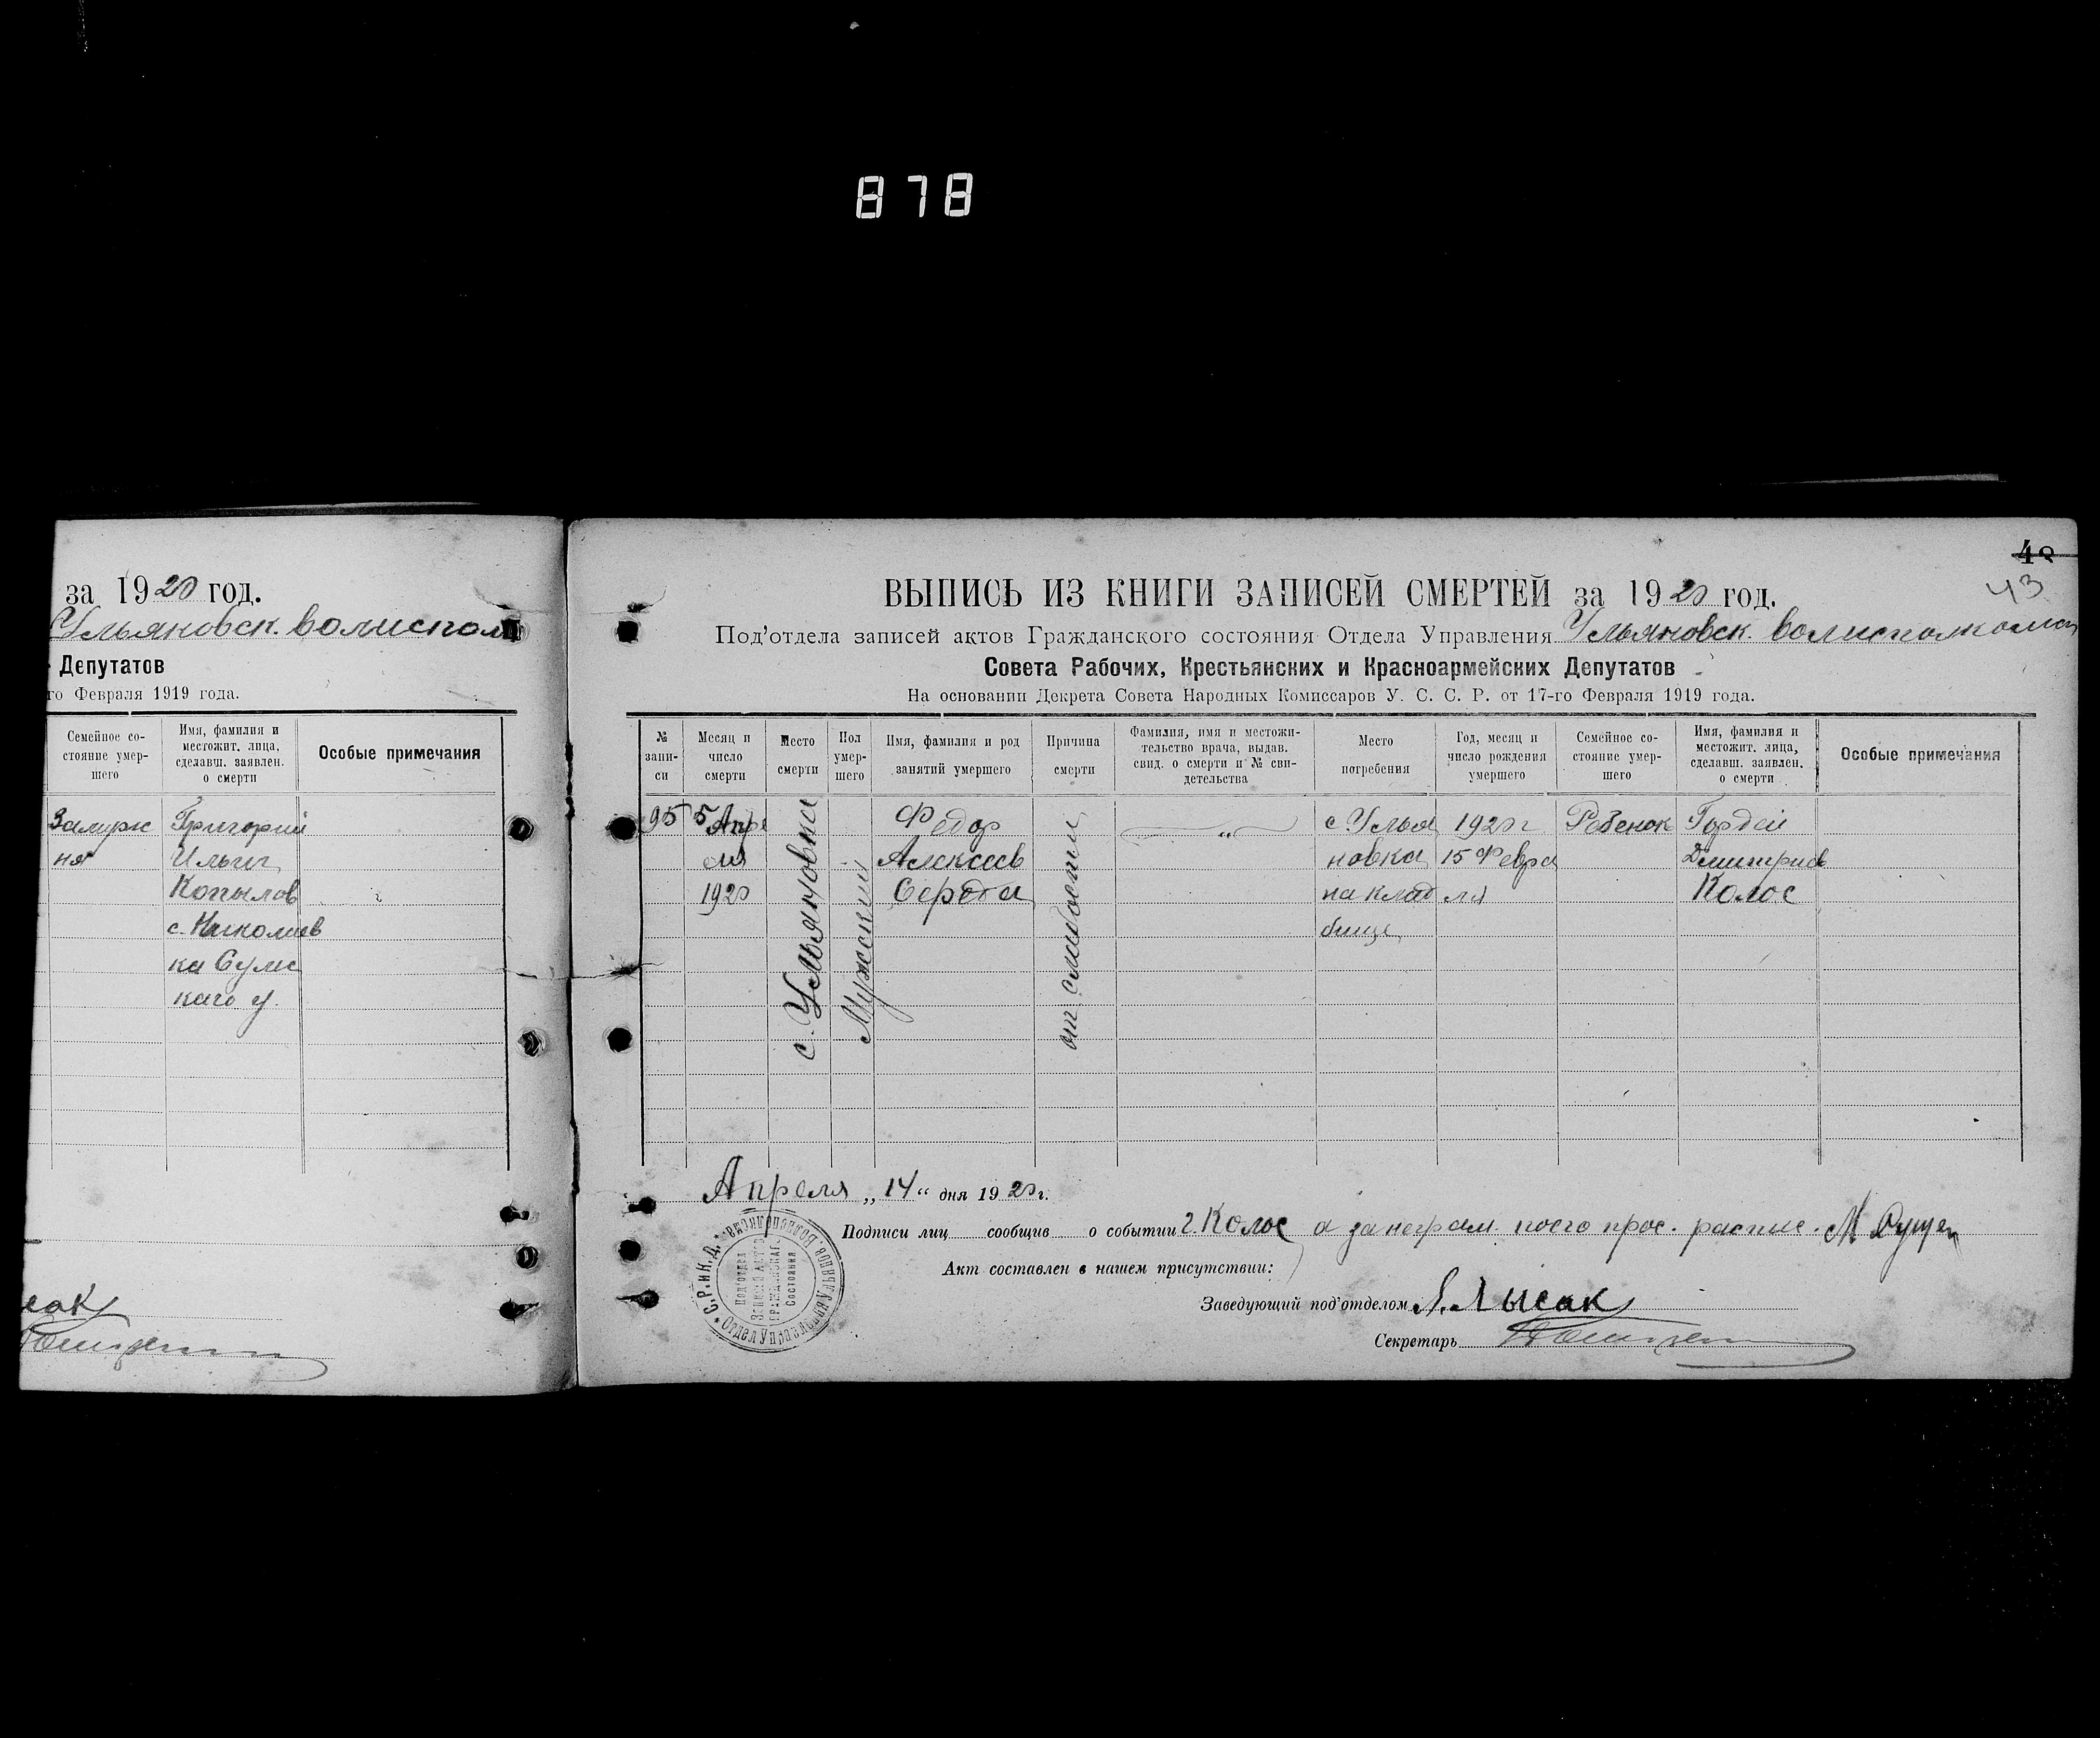 878
за 1920 год.
Ульяновск. волиспол
Депутатов
го Февраля 1919 года.
Семейное со-
стояние умер-
шего
Имя, фамилия и
местожит. лица,
сделавш. заявлен.
о смерти
Особые примечания
Замужс
ня
Григорий
Ильич
Копылов
с. Николаев
ка Сумс
каго у.
сак
48
43
ВЫПИСЬ ИЗ КНИГИ ЗАПИСЕЙ СМЕРТЕЙ за 1920 год.
Под'отдела записей актов Гражданского состояния Отдела Управления Ульяновск. волисполкома
Совета Рабочих, Крестьянских и Красноармейских Депутатов
На основании Декрета Совета Народных Комиссаров У. С. С. Р. от 17-го Февраля 1919 года.
№
запи-
си
Месяц и
число
смерти
Место
смерти
Пол
умер-
шего
Имя, фамилия и род
занятий умершего
Причина
смерти
Фамилия, имя и местожи-
тельство врача, выдав.
свид. о смерти и № сви-
детельства
Место
погребения
Год, месяц и
число рождения
умершего
Семейное со-
стояние умер-
шего
Имя, фамилия и
местожит. лица,
сделавш. заявлен.
о смерти
Особые примечания
95
5 Апре
ля
1920
с. Ульяновка
Мужский
Федор
Алексеев
Середа
от слабости
"
с. Улья
новка
на клад
бище
1920 г
15 Февра
ля
Ребенок
Гордей
Дмитриев
Колос
Апреля „14“ дня 1920 г.
Подписи лиц сообщив о событии Г. Колос а за неграм. по его прос. распис. М
Акт составлен в нашем присутствии:
Заведующий под'отделом Лысак
Секретарь
С.Р. и К.Д.
Отдел Управления
Под'отдел
Записи Акт.
Гражданск.
Состояния